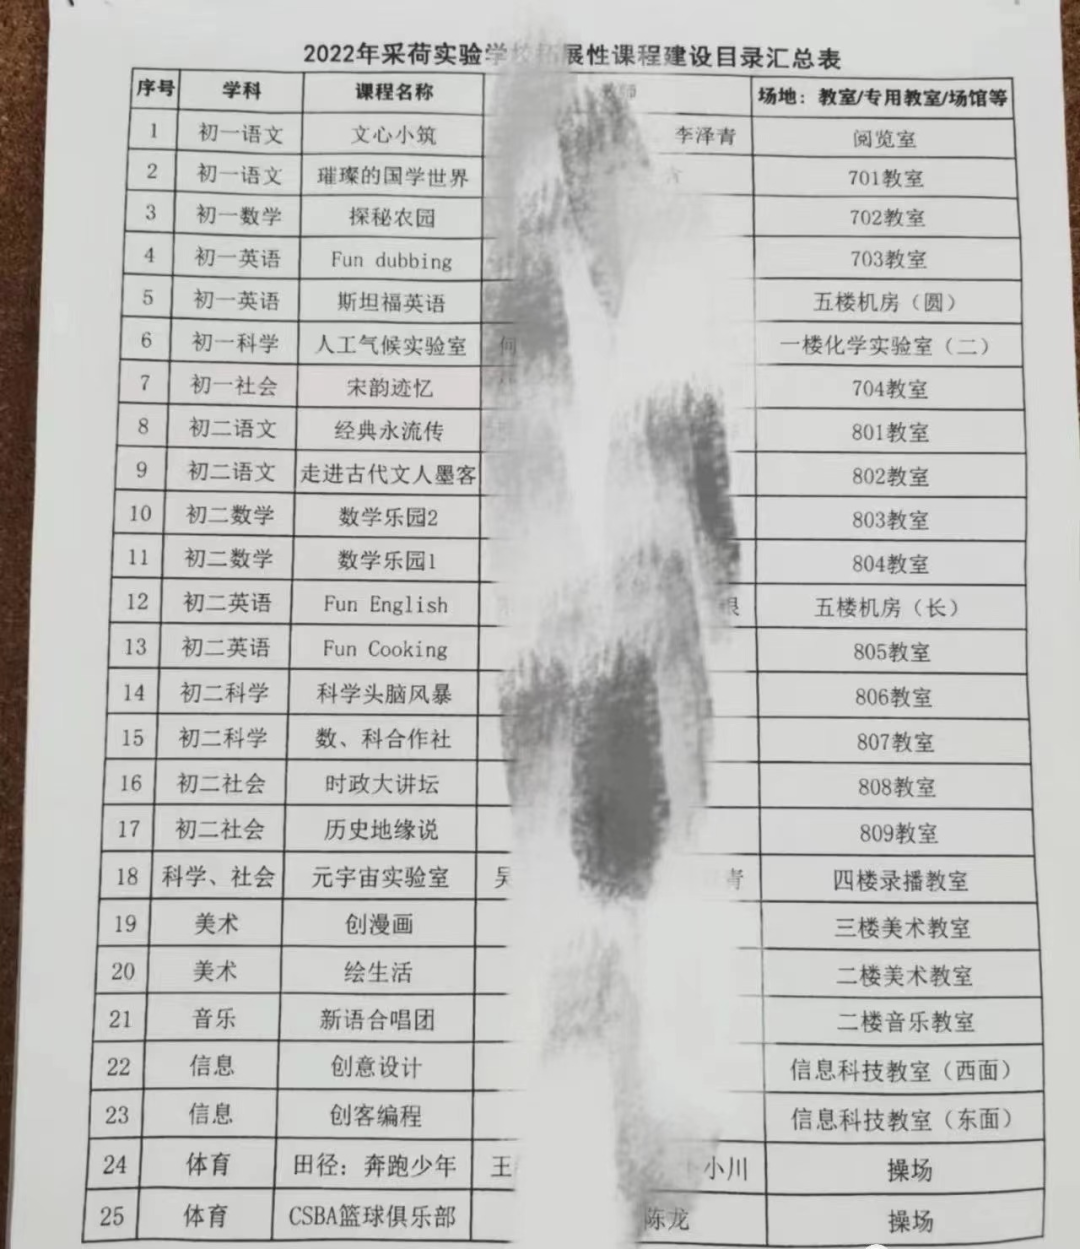 2022年采荷实验学校拓展性课程建设目录汇总表
序号 学科 课程名称 教师 场地：教室/专用教室/场馆等
1 初一语文 文心小筑 李泽青 阅览室
2 初一语文 璀璨的国学世界 701教室
3 初一数学 探秘农园 702教室
4 初一英语 Fun dubbing 703教室
5 初一英语 斯坦福英语 五楼机房（圆）
6 初一科学 人工气候实验室 何 一楼化学实验室（二）
7 初一社会 宋韵迹忆 704教室
8 初二语文 经典永流传 801教室
9 初二语文 走进古代文人墨客 802教室
10 初二数学 数学乐园2 803教室
11 初二数学 数学乐园1 804教室
12 初二英语 Fun English 五楼机房（长）
13 初二英语 Fun Cooking 805教室
14 初二科学 科学头脑风暴 806教室
15 初二科学 数、科合作社 807教室
16 初二社会 时政大讲坛 808教室
17 初二社会 历史地缘说 809教室
18 科学、社会 元宇宙实验室 吴 青 四楼录播教室
19 美术 创漫画 三楼美术教室
20 美术 绘生活 二楼美术教室
21 音乐 新语合唱团 二楼音乐教室
22 信息 创意设计 信息科技教室（西面）
23 信息 创客编程 信息科技教室（东面）
24 体育 田径：奔跑少年 王 小川 操场
25 体育 CSBA篮球俱乐部 陈龙 操场